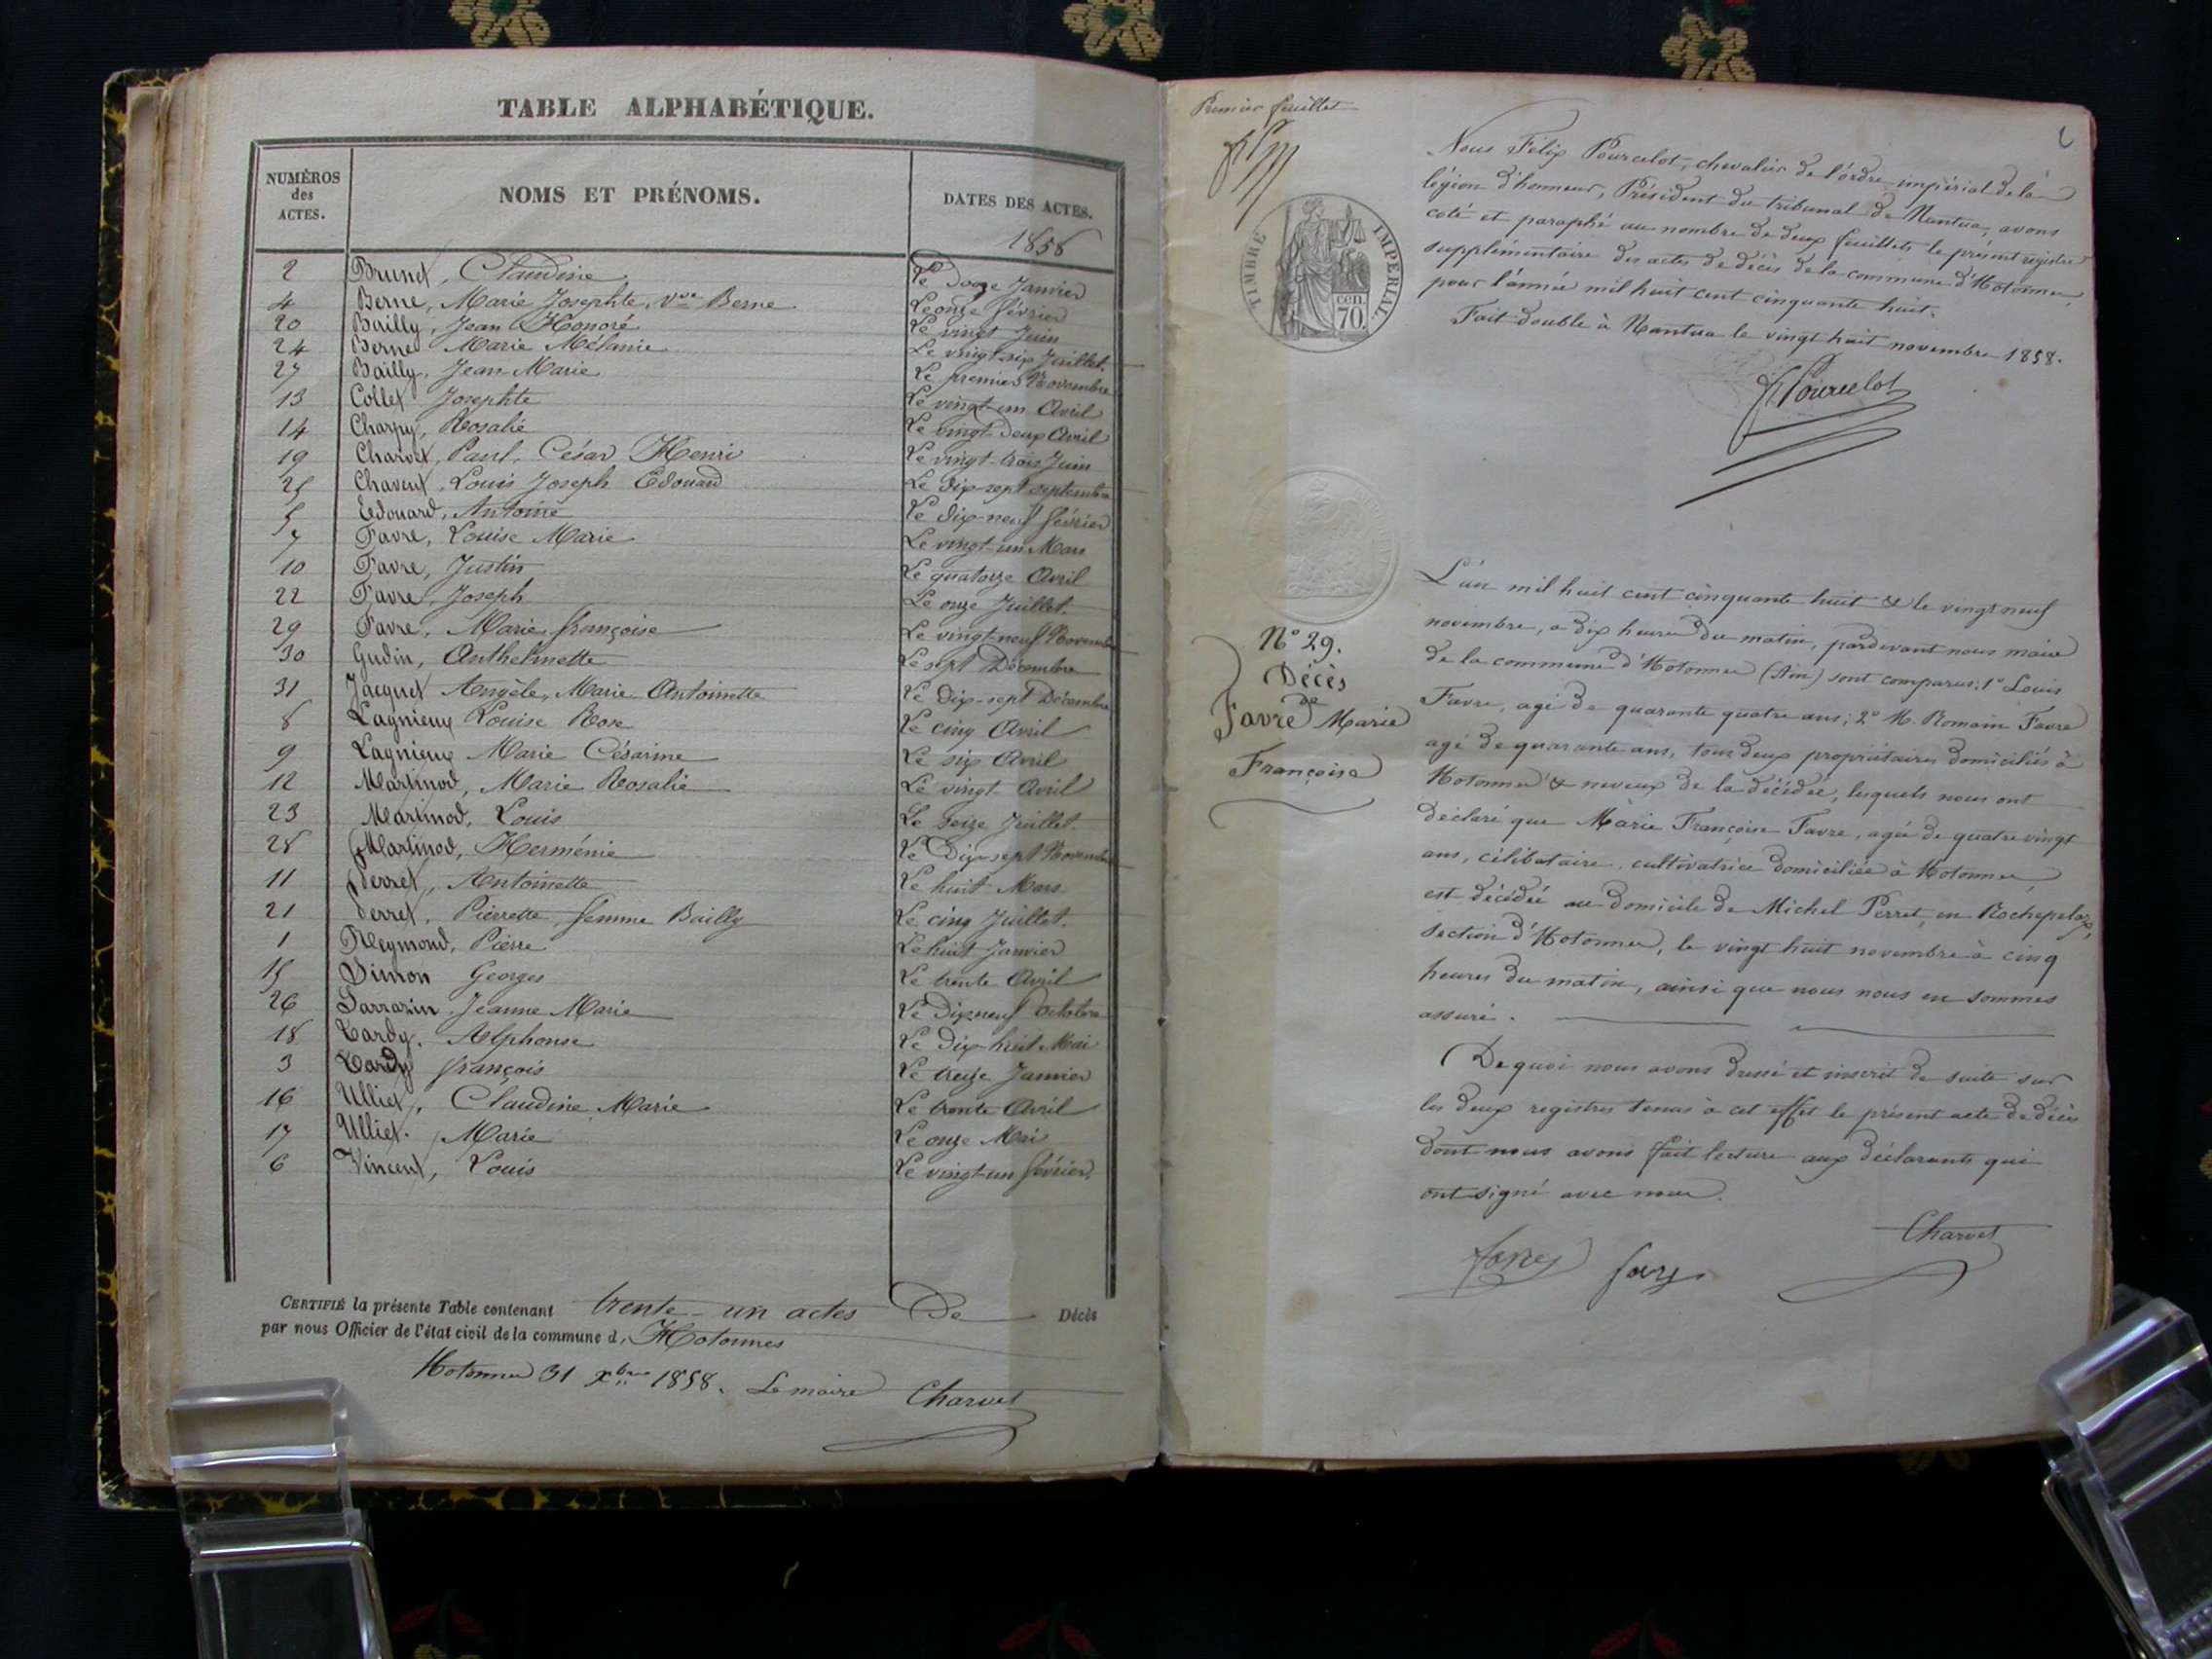 TABLE ALPHABÉTIQUE.
NUMÉROS des ACTES. NOMS ET PRÉNOMS. DATES DES ACTES.
1858
2 Brunet, Claudine Le douze Janvier
4 Berne, Marie Josephte, Vve Berne Le onze février
20 Bailly, Jean Honoré Le vingt Juin
24 Berne Marie Mélanie Le vingt-six Juillet.
27 Bailly, Jean-Marie Le premier Novembre
13 Collet Josephte Le vingt-un Avril
14 Charpy, Rosalie Le vingt-deux Avril
19 Charvet, Paul, César Henri Le vingt-trois Juin
25 Chavent, Louis Joseph Edouard Le dix-sept septembre
5 Edouard, Antoine Le dix-neuf février
7 Favre, Louise Marie Le vingt-un Mars
10 Favre, Justin Le quatorze Avril
22 Favre, Joseph Le onze Juillet.
29 Favre, Marie françoise Le vingt-neuf Novembre
30 Gudin, Anthelmette Le sept Décembre
31 Jacquet Angèle, Marie Antoinette Le Dix-sept Décembre
8 Lagnieux Louise Rose Le cinq Avril
9 Lagnieux Marie Césarine Le six Avril
12 Martinod, Marie Rosalie Le vingt Avril
23 Martinod, Louis Le seize Juillet.
28 Martinod, Herménie Le Dix-sept Novembre
11 Perret, Antoinette Le huit Mars
21 Perret, Pierrette, femme Bailly Le cinq Juillet.
1 Reymond, Pierre Le huit Janvier
15 Simon Georges Le trente Avril
26 Sarrazin. Jeanne Marie Le Dix neuf octobre
18 Tardy, Alphonse Le dix-huit Mai
3 Tardy françois Le treize Janvier
16 Ulliet, Claudine Marie Le trente Avril
17 Ulliet. Marie Le onze Mai
6 Vincent, Louis Le vingt-un février.
CERTIFIÉ la présente Table contenant trente-un actes De Décès
par nous Officier de l'état civil de la commune d, Hotonnes
Hotonnes 31 Xbre 1858. Le maire Charvet
Premier feuillet
Nous Félix Pourcelot, chevalier de l'ordre impérial de la
légion d'honneur, Président du tribunal de Nantua, avons
coté et paraphé au nombre de deux feuillets le présent registre
supplémentaire des actes de décès de la commune d'Hotonnes,
pour l'année mil huit cent cinquante huit.
Fait double à Nantua le vingt huit novembre 1858.
F. Pourcelot
TIMBRE IMPÉRIAL.
cen.
70.
N° 29.
Décès
de
Favre Marie
Françoise
L'an mil huit cent cinquante huit & le vingt neuf
novembre, à dix heures du matin, pardevant nous maire
de la commune d'Hotonnes (Ain) sont comparus: 1° Louis
Favre, agé de quarante quatre ans; 2° M. Romain Favre
agé de quarante ans, tous deux propriétaires domiciliés à
Hotonnes & neveux de la décédée, lesquels nous ont
déclaré que Marie Françoise Favre, agée de quatre vingt
ans, célibataire, cultivatrice domiciliée à Hotonnes,
est décédée au domicile de Michel Perret, en Rochepelaz,
section d'Hotonnes, le vingt huit novembre à cinq
heures du matin, ainsi que nous nous en sommes
assuré.
De quoi nous avons dressé et inscrit de suite sur
les deux registres tenus à cet effet le présent acte de décès
dont nous avons fait lecture aux déclarants qui
ont signé avec nous.
Charvet